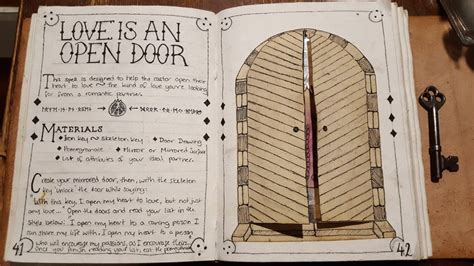 LOVE IS AN
OPEN DOOR
This spell is designed to help the caster open their
heart to love ~ the kind of love you're looking
for from a romantic partner.
MATERIALS
Iron key or skeleton key
Door Drawing
Pomegranate
Mirror or Mirrored Surface
List of attributes of your ideal partner.
Create your mirrored door, then, with the skeleton
key unlock the door while saying:
With this key, I open my heart to love, but not just
any love... Open the doors and read your list in the
style below: I open my heart to a caring person I
can share my life with. I open my heart to a person
who will encourage my passions, as I encourage theirs.
Once you finish reading your list, eat the pomegranate
41
42